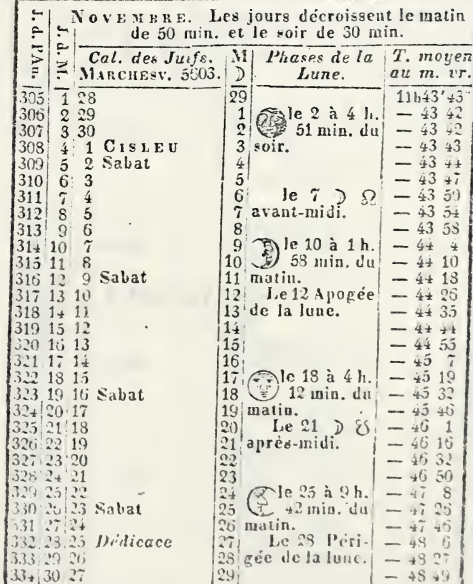 J. d. l'Am J. d. M. NOVEMBRE. Les jours décroissent le matin
de 50 min. et le soir de 30 min.
Cal. des Juifs. M Phases de la T. moyen
MARCHESV. 5603. ☽ Lune. au m. vr.
305 1 28 29 11h43'43"
306 2 29 1 le 2 à 4 h. — 43 42
307 3 30 2 51 min. du — 43 42
308 4 1 CISLEU 3 soir. — 43 43
309 5 2 Sabat 4 — 43 44
310 6 3 5 — 43 47
311 7 4 6 le 7 ☽ ☊ — 43 50
312 8 5 7 avant-midi. — 43 54
313 9 6 8 — 43 58
314 10 7 9 le 10 à 1 h. — 44 4
315 11 8 10 58 min. du — 44 10
316 12 9 Sabat 11 matin. — 44 18
317 13 10 12 Le 12 Apogée — 44 26
318 14 11 13 de la lune. — 44 35
319 15 12 14 — 44 44
320 16 13 15 — 44 55
321 17 14 16 — 45 7
322 18 15 17 le 18 à 4 h. — 45 19
323 19 16 Sabat 18 12 min. du — 45 32
324 20 17 19 matin. — 45 46
325 21 18 20 Le 21 ☽ ☋ — 46 1
326 22 19 21 après-midi. — 46 16
327 23 20 22 — 46 32
328 24 21 23 — 46 50
329 25 22 24 le 25 à 9 h. — 47 8
330 26 23 Sabat 25 42 min. du — 47 26
331 27 24 26 matin. — 47 46
332 28 25 Dédicace 27 Le 28 Péri- — 48 6
333 29 26 28 gée de la lune. — 48 27
334 30 27 29 — 48 49